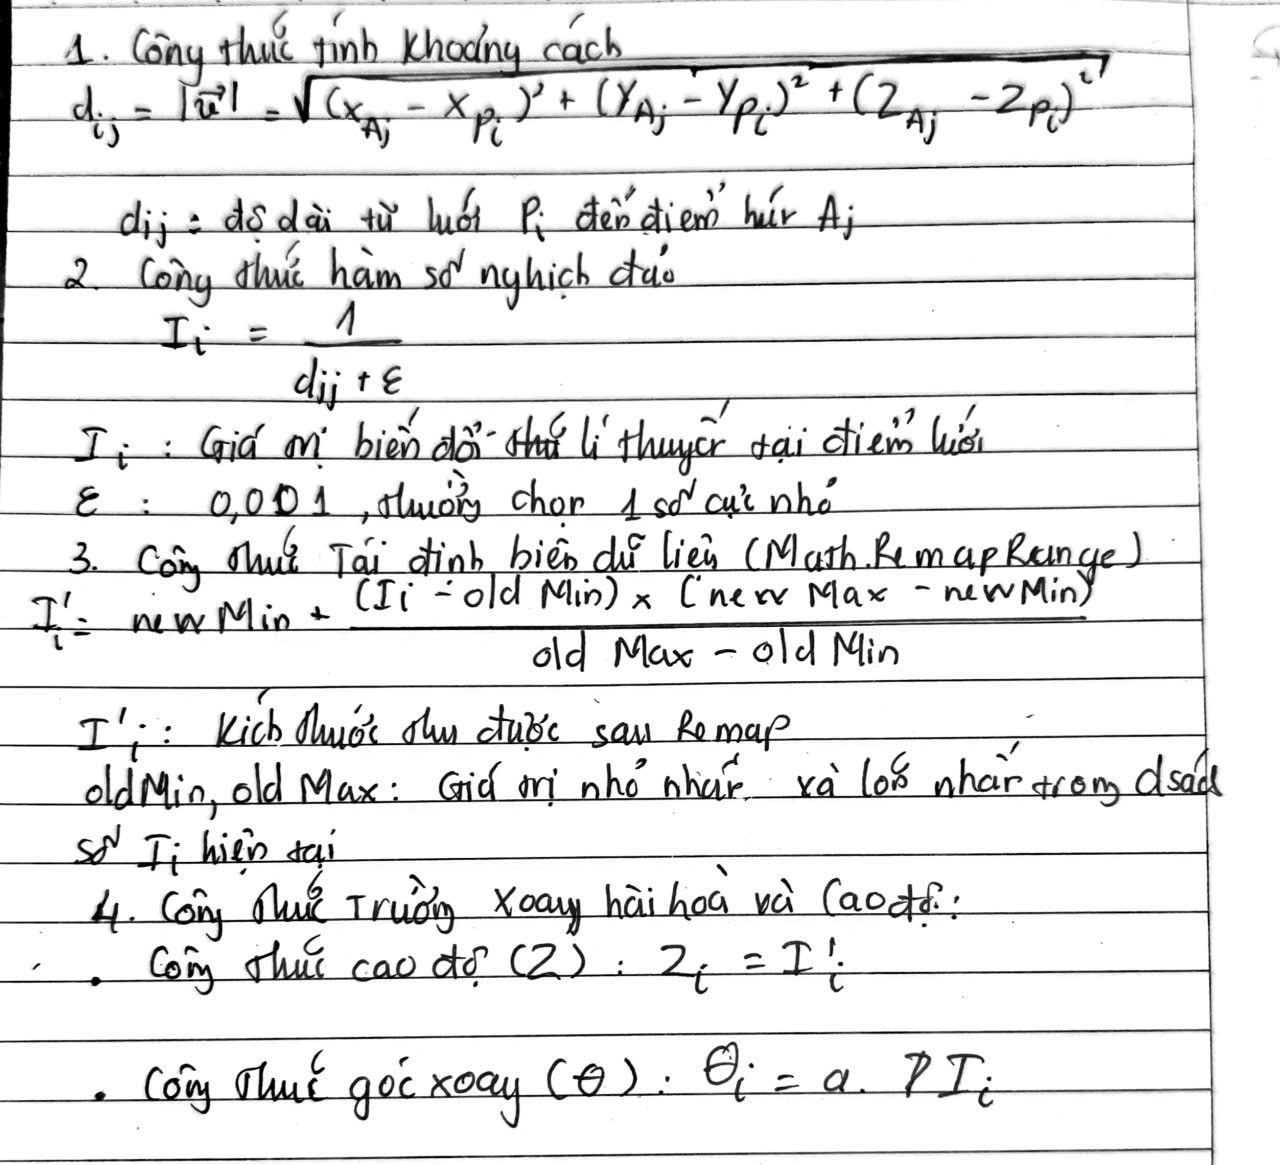 1. Công thức tính khoảng cách
d_ij = |u⃗| = √((x_Aj - x_Pi)² + (Y_Aj - Y_Pi)² + (Z_Aj - Z_Pi)²)
dij = độ dài từ lưới Pi đến điểm hút Aj
2. Công thức hàm số nghịch đảo
Ii = 1 / (dij + ε)
Ii : Giá trị biến đổi lí thuyết tại điểm lưới
ε : 0,001, thường chọn 1 số cực nhỏ
3. Công thức Tái định biên dữ liệu (Math.RemapRange)
I'i = new Min + ((Ii - old Min) × (new Max - new Min)) / (old Max - old Min)
I'i : Kích thước thu được sau Remap
old Min, old Max: Giá trị nhỏ nhất và lớn nhất trong dsách
số Ii hiện tại
4. Công thức Trường xoay hài hoà và Cao độ:
. Công thức cao độ (Z) : Zi = I'i
. Công thức góc xoay (θ) : θi = a. Ii